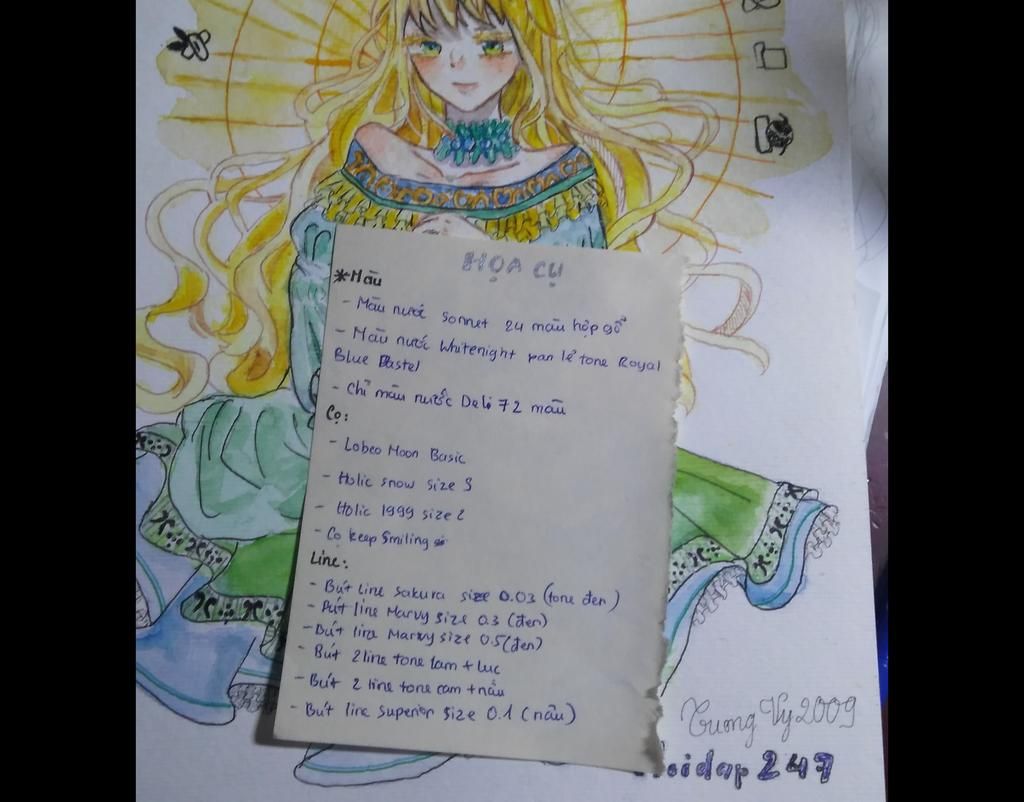 HỌA CỤ
*Màu
- Màu nước Sonnet 24 màu hộp gỗ
- Màu nước Whitenight pan lẻ tone Royal
Blue Pastel
- Chì màu nước Deli 72 màu
Cọ:
- Lobeo Moon Basic
- Holic snow size 3
- Holic 1999 size 2
- Cọ keep Smiling
Line:
- Bút line sakura size 0.03 (tone đen)
- Bút line Marvy size 0.3 (đen)
- Bút line Marvy size 0.5 (đen)
- Bút 2line tone lam + lục
- Bút 2 line tone cam + nâu
- Bút line Superior size 0.1 (nâu)
Tường Vy 2009
Hoidap 247